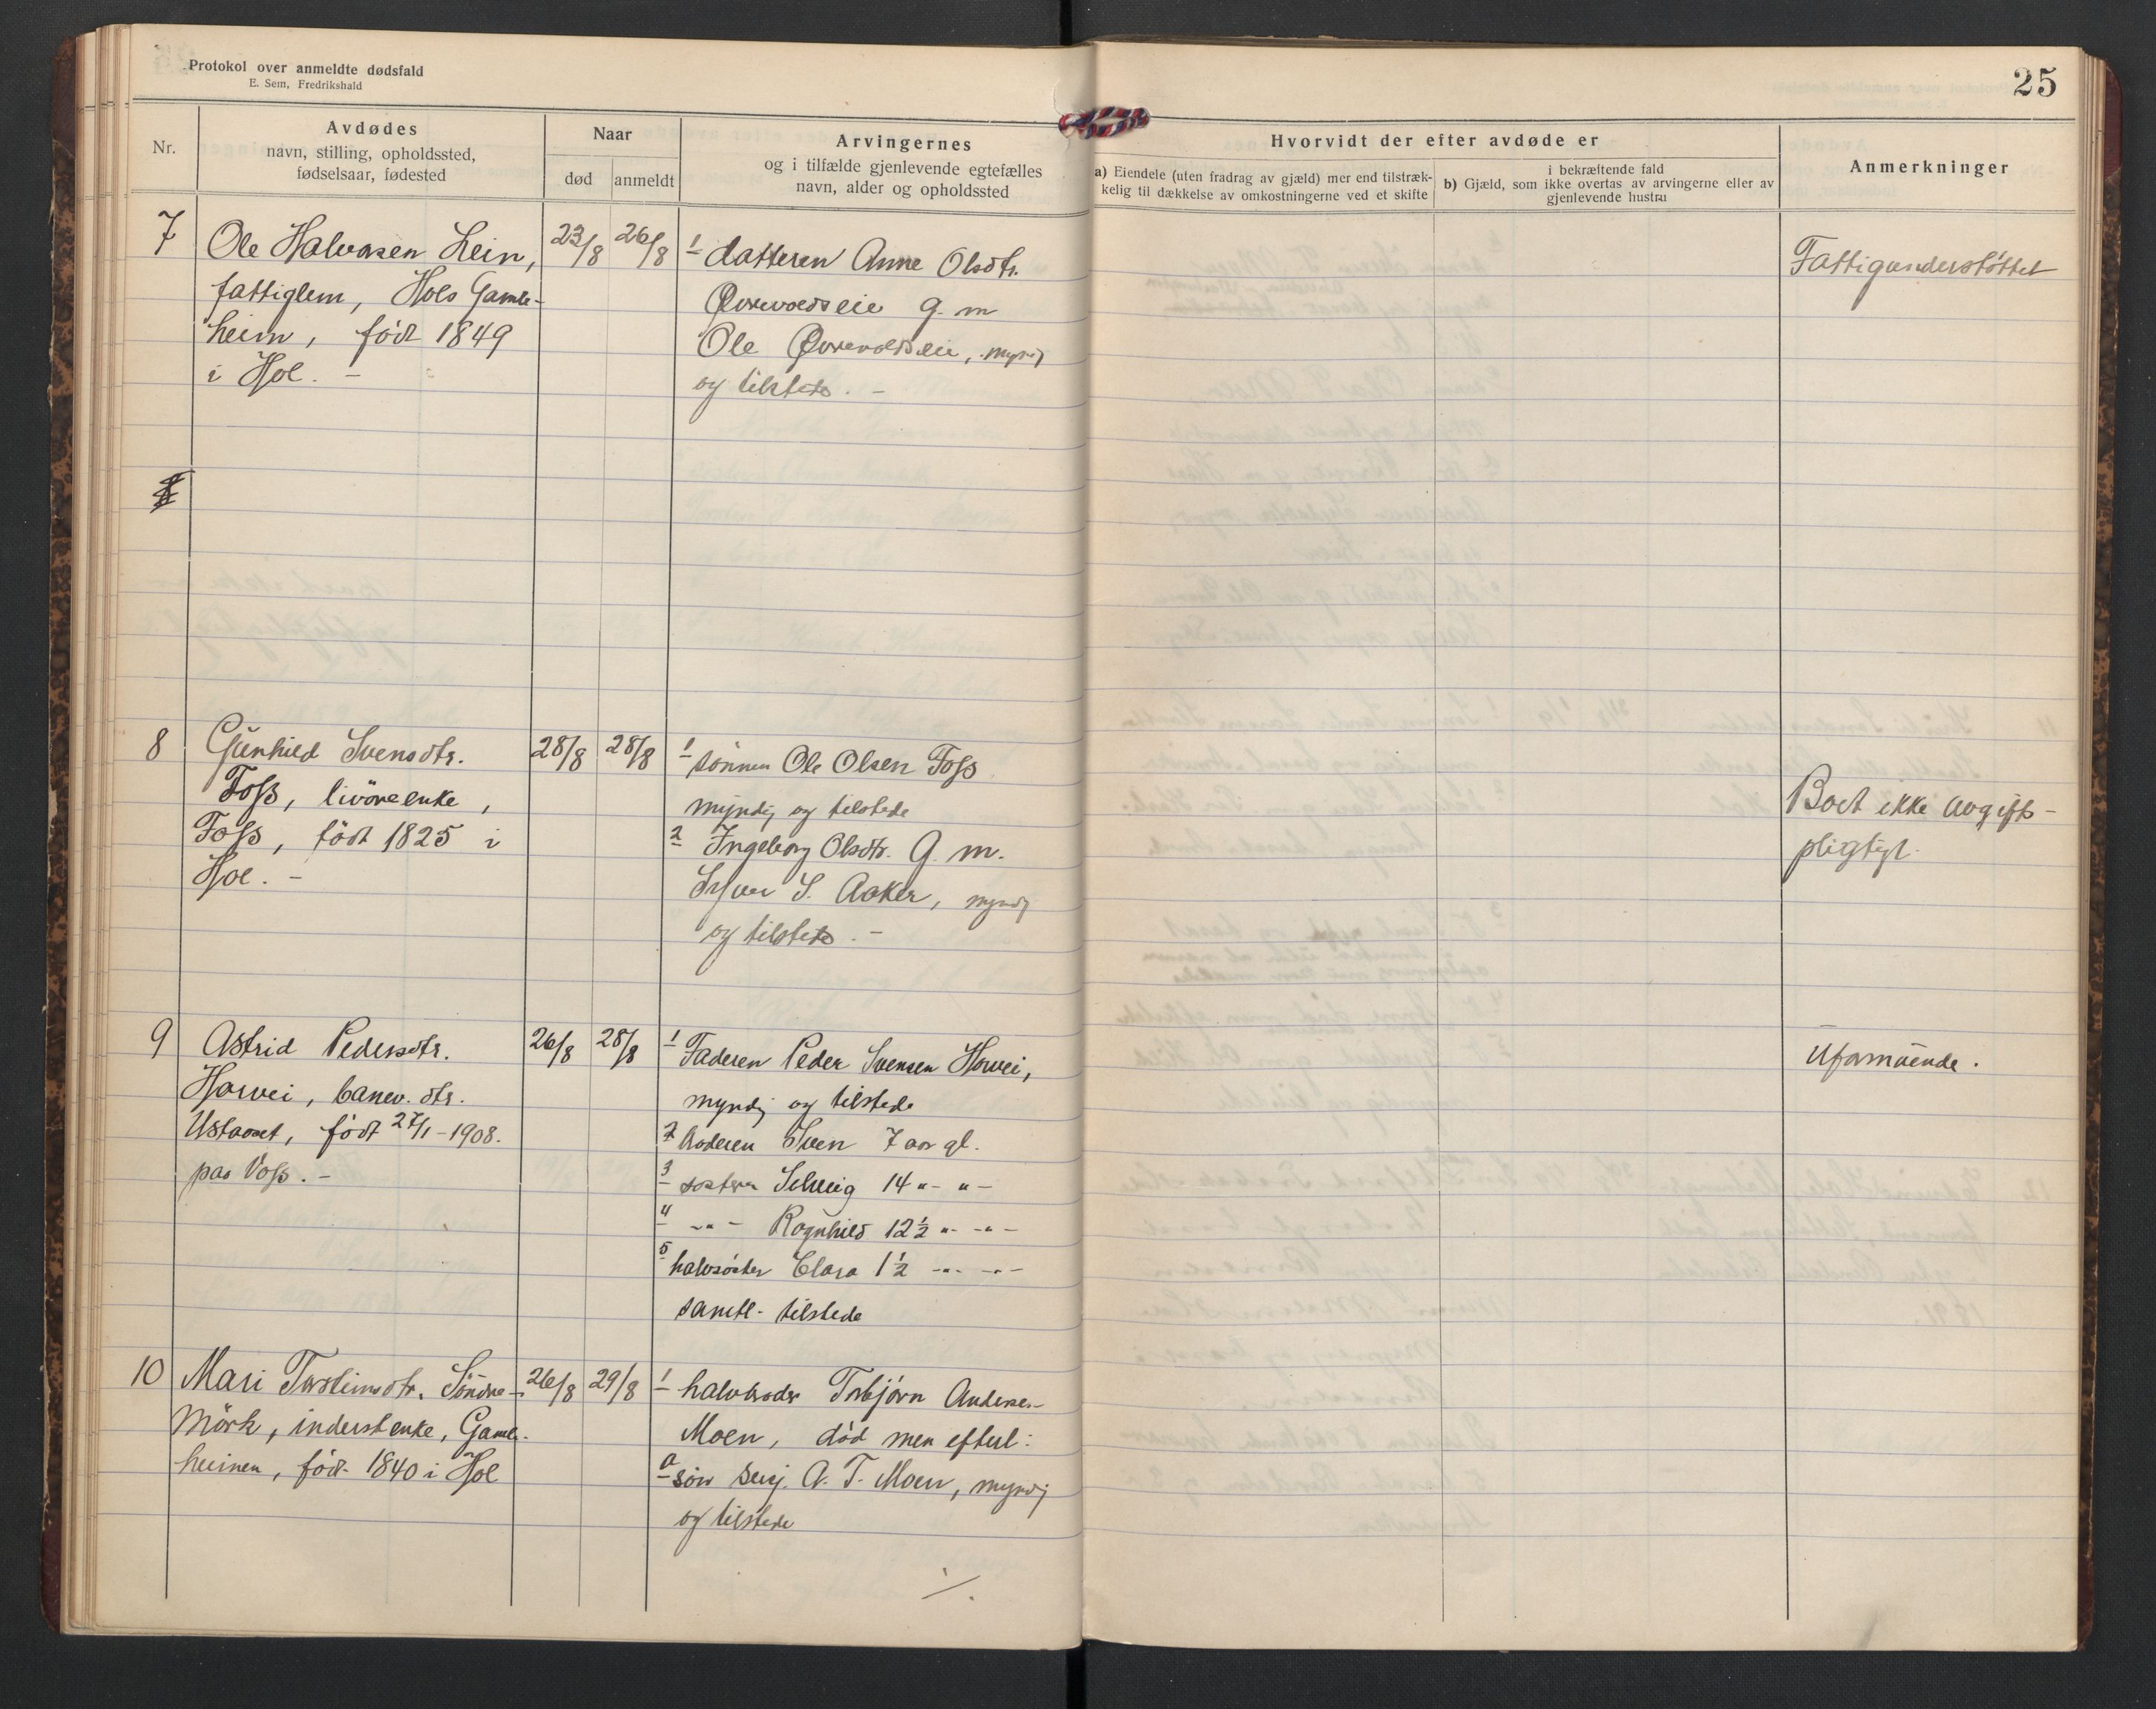 Protokol over anmeldte dødsfald
E. Sem, Fredrikshald
25
Nr.
Avdødes
navn, stilling, opholdssted,
fødselsaar, fødested
Naar
død
anmeldt
Arvingernes
og i tilfælde gjenlevende egtefælles
navn, alder og opholdssted
Hvorvidt der efter avdøde er
a) Eiendele (uten fradrag av gjæld) mer end tilstræk-
kelig til dækkelse av omkostningerne ved et skifte
i bekræftende fald
b) Gjæld, som ikke overtas av arvingerne eller av
gjenlevende hustru
Anmerkninger
7
Ole Halvorsen Lein,
fattiglem, Hols Gamle-
heim, född 1849
i Hol. -
23/8
26/8
1 datteren Anne Olsdtr.
Øvrevoldseie g. m
Ole Øvrevoldseie, myndig
og tilstede. -
Fattigunderstøttet
8
Gunhild Svensdtr.
Foss, livöreenke,
Foss, född 1825 i
Hol. -
28/8
28/8
1 sönnen Ole Olsen Foss
myndig og tilstede
2 Ingeborg Olsdtr. g. m.
S. Aaker, myndig
og tilstede. -
Boet ikke avgifts-
pligtigt.
9
Astrid Pedersdtr.
Horvei, banev. dtr.
Ustaoset, född 27/1-1908.
paa Voss. -
26/8
28/8
1 Faderen Peder Svensen Horvei,
myndig og tilstede
2 Broderen Sven 7 aar gl.
3 søsteren Solveig 14 " - " -
4 - " - Ragnhild 12½ " - " -
5 halvsöster Clara 1½ - " - " -
samtl. tilstede
Uformuende.
10
Mari Torsteinsdtr. Söndre-
Mörk, inderstenke, Gamle-
heimen, född 1840 i Hol
26/8
29/8
1 halvbroder Torbjörn Anderse-
Moen, död men efterl:
a sön serg. A. T. Moen, myndig
og tilstede
./.